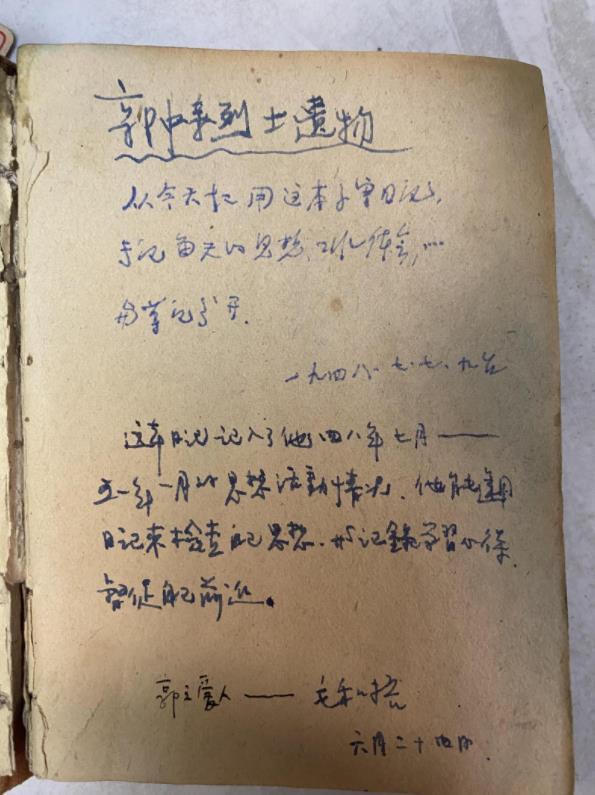 郭申录烈士遗物
从今天起用这本子写日记,
专记每天的思想、工作体会,…
与笔记分开.
一九四八.七.七.
这本日记记入了他四八年七月——
五一年一月的思想活动情况.他能运用
日记来检查自己思想.并记录学习心得.
督促自己前进。
郭之爱人——毛
六月二十四日.